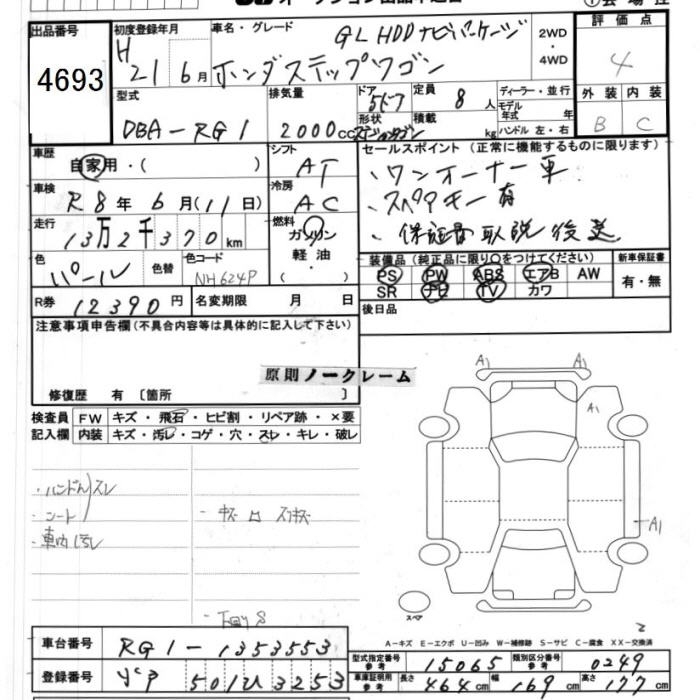 出品番号
4693
初度登録年月
H 21 6月
車名・グレード
GL HDDナビパッケージ
ホンダステップワゴン
2WD
・
4WD
評価点
4
外装 内装
B C
型式
DBA-RG1
排気量
2000cc
ドア
5ドア
形状
定員
8人
積載
kg
ディーラー・並行
モデル年式 年
ハンドル 左・右
車歴
自家用・( )
シフト
AT
車検
R8年 6月(11日)
冷房
AC
走行
13万2千370km
燃料
ガソリン
軽油
・( )
色
パール
色替
色コード
NH624P
R券
12390円
名変期限 月 日
セールスポイント(正常に機能するものに限ります)
、ワンオーナー車
、スペアキー有
、保証書取説後送
装備品(純正品に限り○をつけてください)
PS PW ABS エアB AW
SR ナビ TV カワ
新車保証書
有・無
後日品
注意事項申告欄(不具合内容等は具体的に記入して下さい)
原則ノークレーム
修復歴 有〔箇所 〕
検査員記入欄
FW キズ・飛石・ヒビ割・リペア跡・×要
内装 キズ・汚レ・コゲ・穴・スレ・キレ・破レ
・ハンドルスレ
・シート
・車内汚レ
・下回りS
A1 A1
A1
A1
スペア
2
A-キズ E-エクボ U-凹み W-補修跡 S-サビ C-腐食 XX-交換済
車台番号
RG1-1353553
登録番号
501ひ3253
型式指定番号
参考
15065
類別区分番号
参考
0249
車庫証明用
参考
長さ 464cm 幅 169cm 高さ 177cm